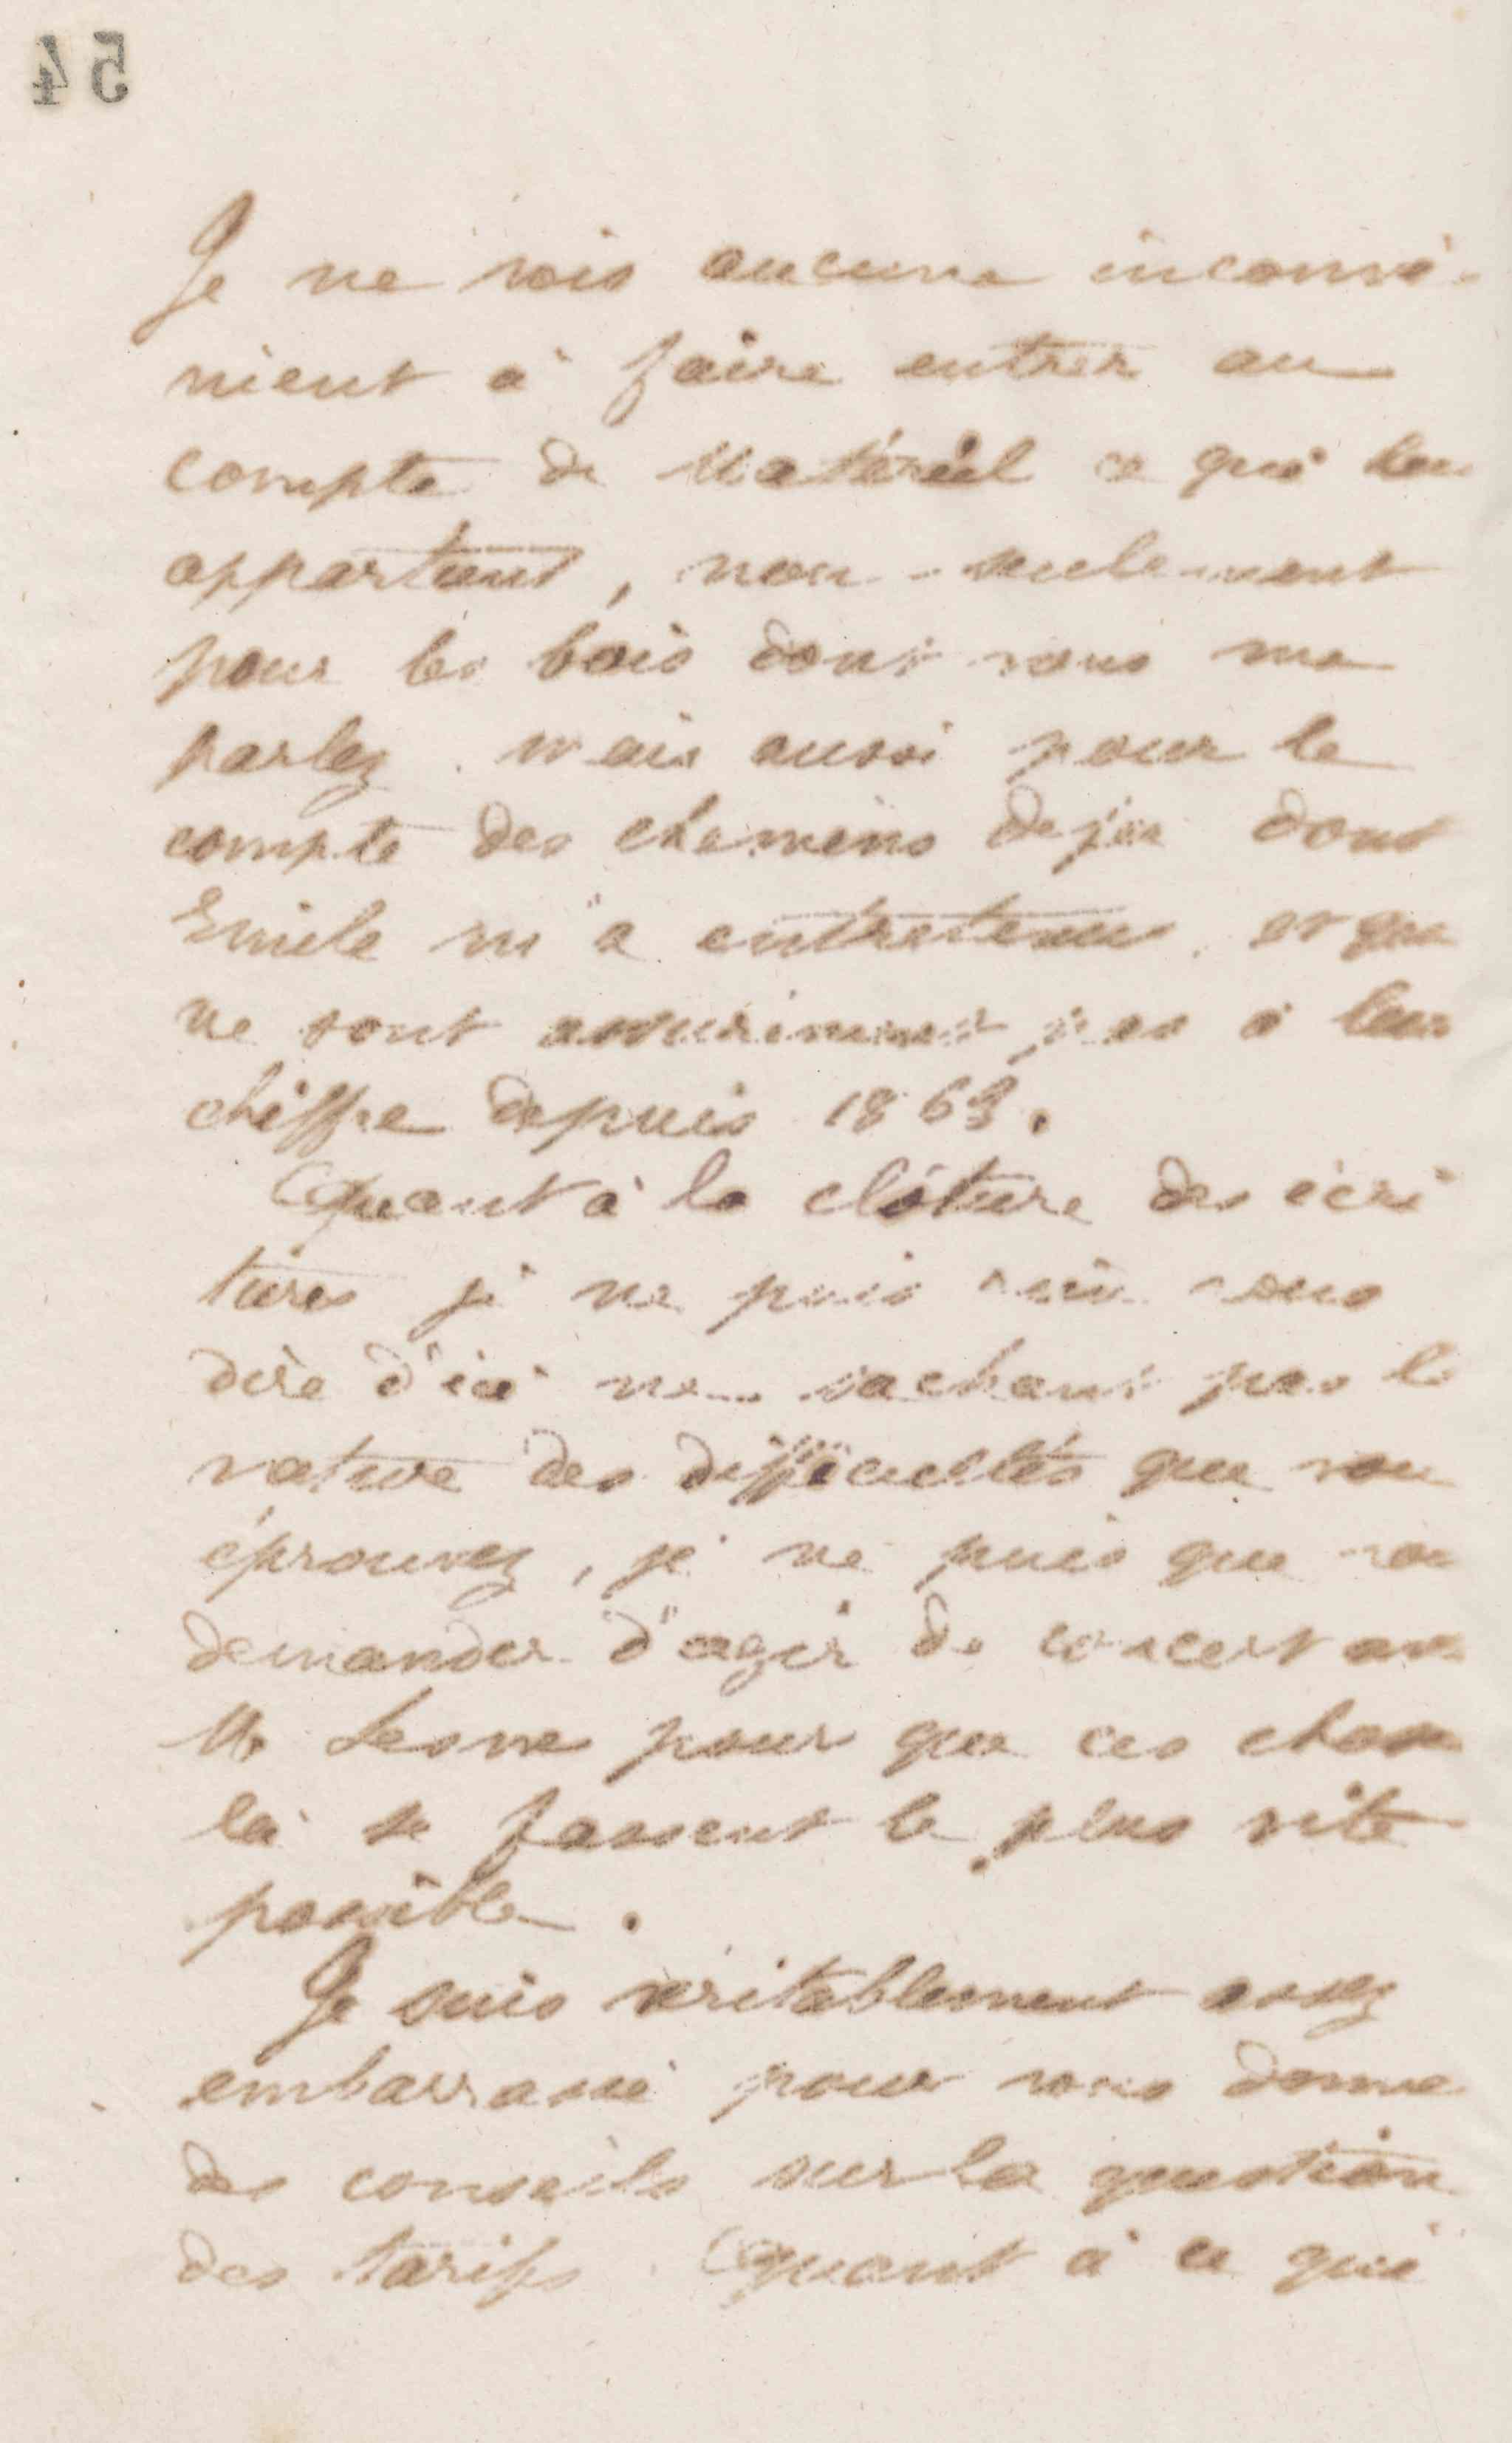 54
Je ne vois aucun inconvé-
nient à faire entrer au
compte de Matériel ce qui leur
appartient, non-seulement
pour les bois dont vous me
parlez mais aussi pour le
compte des chemins de fer dont
Emile m'a entretenu et qui
ne sont assurément pas à leur
chiffre depuis 1863.
Quant à la clôture des écri
tures je ne puis rien vous
dire d'ici ne sachant pas la
nature des difficultés que vous
éprouvez, je ne puis que vous
demander d'agir de concert avec
M. pour que ces choses
là se fassent le plus vite
possible.
Je suis véritablement assez
embarrassé pour vous donner
des conseils sur la question
des tarifs. Quant à ce qui